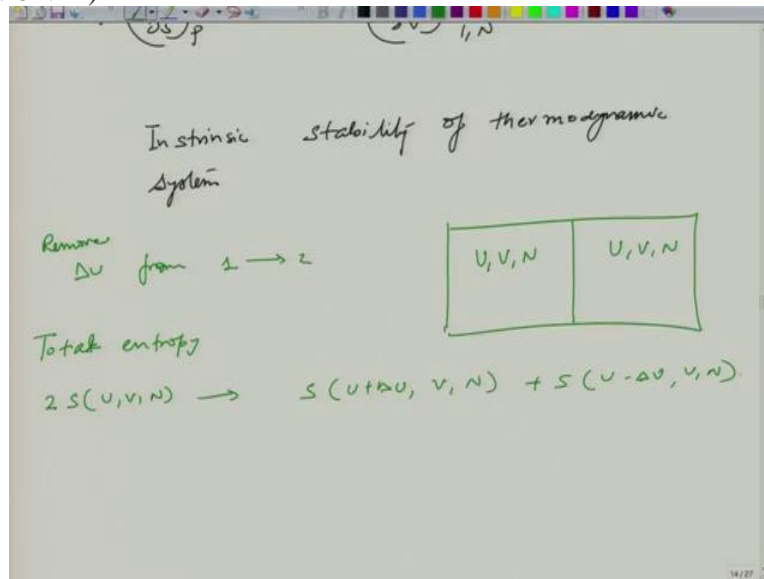 ∂S P
∂V T, N
Instrinsic stability of thermodynamic
system
Remove
ΔU from 1 → 2
U, V, N U, V, N
Total entropy
2 S(U, V, N) → S (U+ΔU, V, N) + S (U-ΔU, V, N).
14/27